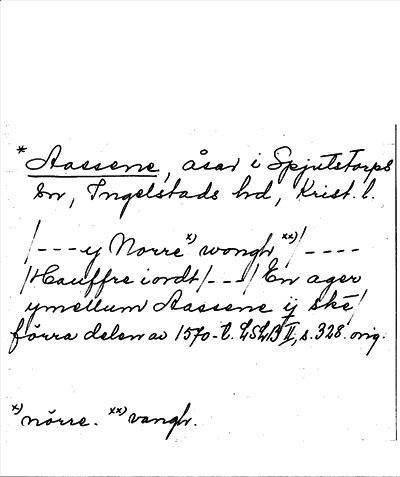 *Aassene, åsar i Spjutstorps
sn, Ingelstads hd, Krist. l.
/---y Norre x) wongh xx)/----
/Hauffre iordt/---/En ager
ymellum Aassene ij skè/
förra delen av 1570-t. LSLB II, s. 328. orig.
x) nörre. xx) vangh.